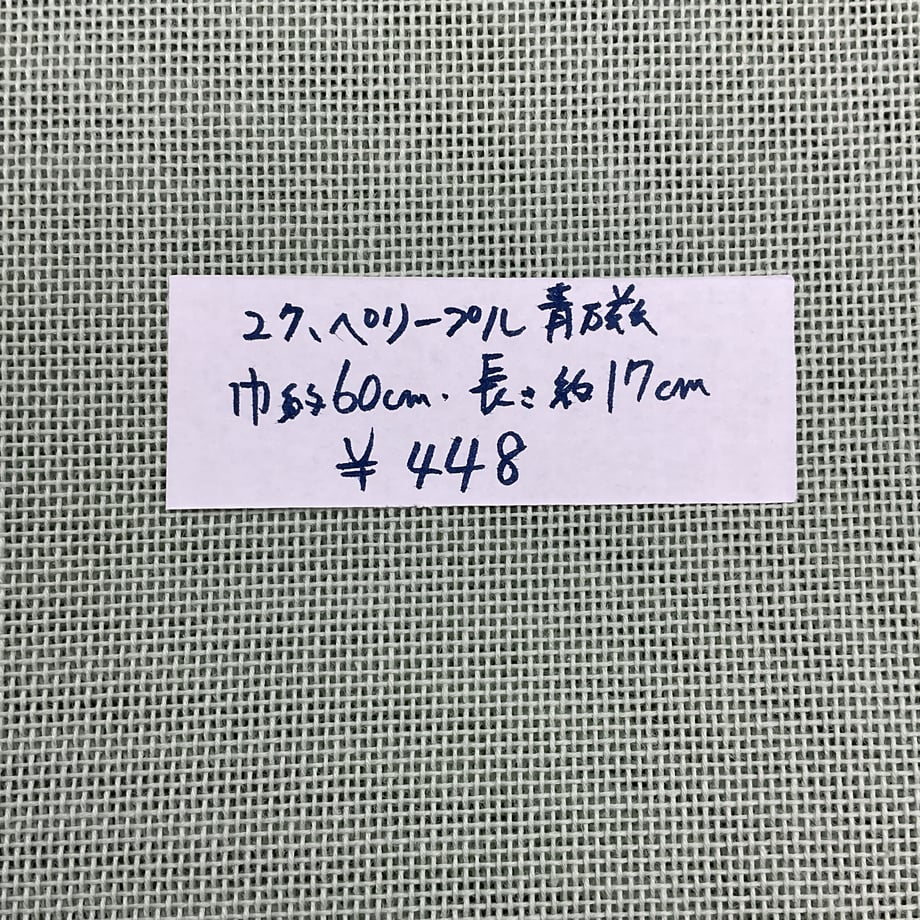 27、ペリープル 青磁
巾約60cm. 長さ約17cm
¥448